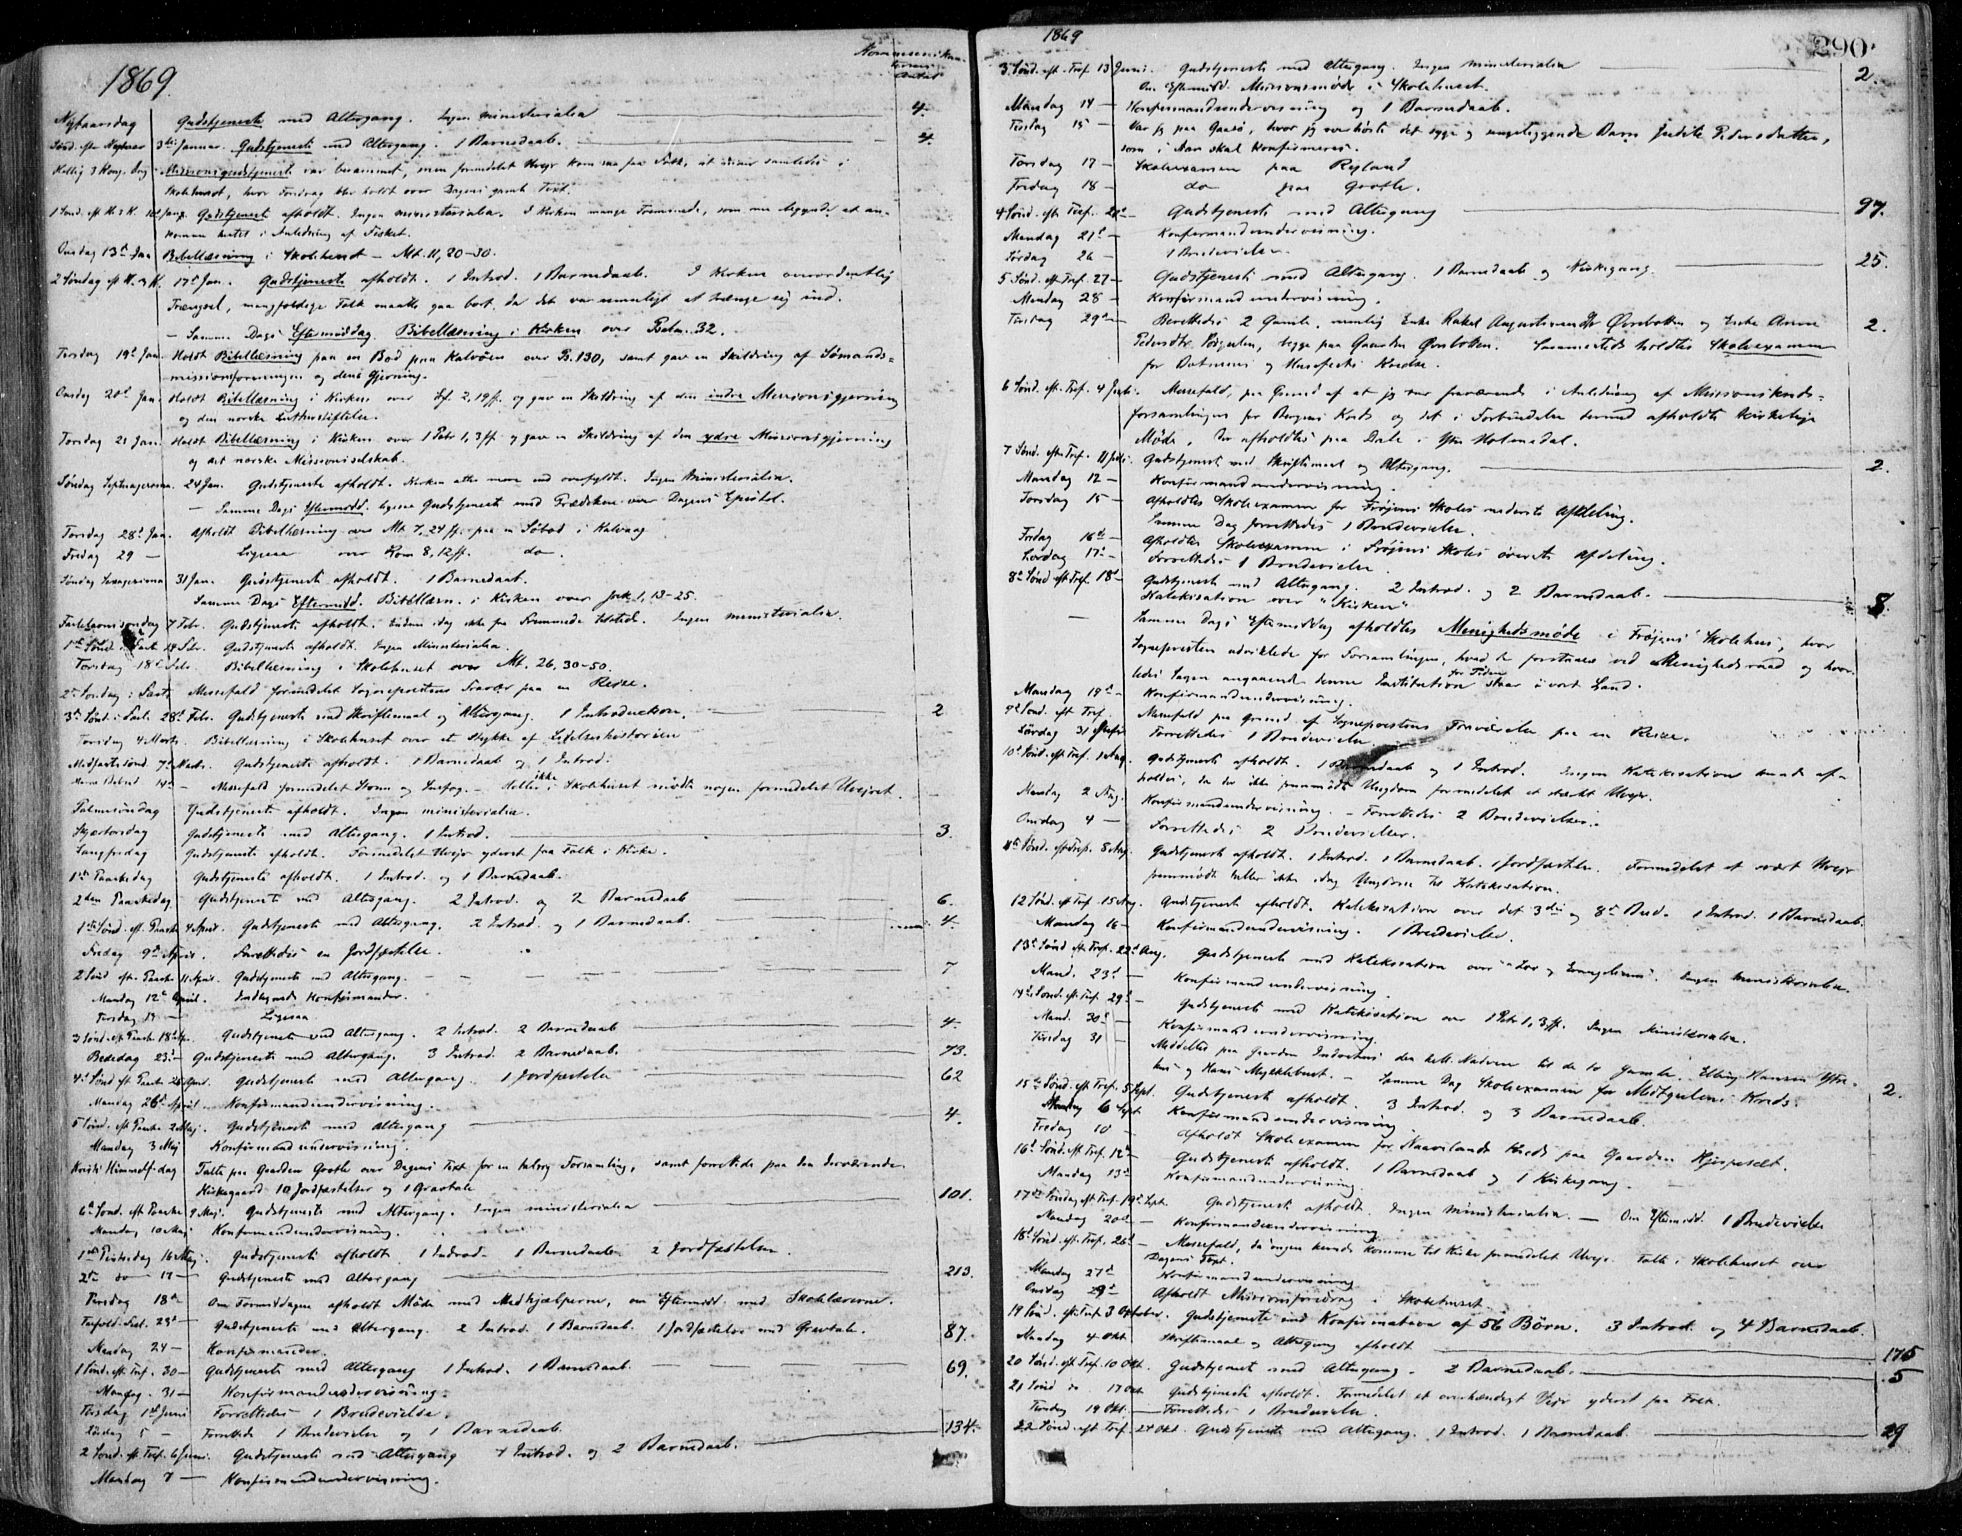 1869.
Nytaarsdag Gudstjeneste med Altergang. Ingen ministerialia 4.
Sönd. eft. Nytaar 3die Januar. Gudstjeneste med Altergang. 1 Barnedaab. 4.
Hellig 3 Kong. dag Missionsgudstjeneste var berammet, men formedelst Uvejr kom saa faa Folk, at disse samledes i
Skolehuset, hvor Foredrag blev holdt over Dagens gamle Text.
Gudstjeneste afholdt. Ingen ministerialia. I Kirken mange Fremmede, som nu begynde at an-
komme hertil i Anledning af Fisket.
Onsdag 13de Jan. Bibellæsning i Skolehuset - Mt. 11, 20-30.
2 Söndag eft. H. 3 K. 17de Jan. Gudstjeneste afholdt. 1 Introd. 1 Barnedaab. I Kirken overordentlig
Trængsel, mangfoldige Folk maatte gaa bort, da det var umuligt at trænge sig ind.
- Samme Dags Eftermiddag Bibellæsning i Kirken over Psalm. 32.
Tirsdag 19de Jan. Holdt Bibellæsning paa en Bod paa Kalvöen over Ps. 130, samt gav en Skildring af Sömands-
missionsforeningen og dens Gjerning.
Onsdag 20de Jan. Holdt Bibellæsning i Kirken over Ef. 2, 19 ff. og gav en Skildring af den indre Missionsgjerning
og den norske Lutherstiftelse.
Torsdag 21 Jan. Holdt Bibellæsning i Kirken over 1 Petr 1, 3 ff. og gav en Skildring af den ydre Missionsgjerning
og det norske Missionsselskab.
Söndag Septuagesima 24 Jan. Gudstjeneste afholdt. Kirken atter mere end overfyldt. Ingen Ministerialia.
- Samme Dags Eftermidd. ligesaa Gudstjeneste med Prædiken over Dagens Epistel.
Torsdag 28de Jan. Afholdt Bibellæsning over Mt. 7, 24 ff. paa en Söbod i Kalvaag
Fredag 29 - Ligesaa over Rom 8, 12 ff. do.
Söndag Sexagesima 31 Jan. Gudstjeneste afholdt. 1 Barnedaab.
Samme Dags Eftermidd. Bibellæsn. i Kirken over Jak. 1, 13-25.
Fastelavnssöndag 7 Febr. Gudstjeneste afholdt. Endnu idag ikke faa Fremmede tilstede. Ingen ministerialia.
1ste Sönd. i Faste 14 Febr. Gudstjeneste afholdt. Ingen Ministerialia.
Torsdag 18de Febr. Bibellæsning i Skolehuset over Mt. 26, 30-50.
2den Söndag i Faste Messefald formedelst Sognepræstens Fravær paa en Reise.
3de Sönd. i Faste 28de Febr. Gudstjeneste med Skriftemaal og Altergang. 1 Introduction. 2
Torsdag 4 Marts. Bibellæsning i Skolehuset over et Stykke af Lidelseshistorien
Midfastesönd. 7de Marts. Gudstjeneste afholdt. 1 Barnedaab og 1 Introd.
14de - Messefald formedelst Storm og Snefog. - Heller ikke i Skolehuset mödte nogen formedelst Uvejret.
Palmesöndag Gudstjeneste afholdt. Ingen ministerialia.
Skjærtorsdag Gudstjeneste med Altergang. 1 Introd. 3.
Langfredag Gudstjeneste afholdt. Formedelst Uvejr yderst faa Folk i Kirke.
1ste Paaskedag Gudstjeneste afholdt. 1 Introd. og 1 Barnedaab.
2den Paaskedag Gudstjeneste med Altergang. 2 Introd. og 2 Barnedaab 6.
1ste Sönd. eft. Paaske 4 April. Gudstjeneste med Altergang. 2 Introd. og 1 Barnedaab. 4.
Fredag 9de April. Forrettedes en Jordfæstelse.
2 Sönd. eft. Paaske 11 April. Gudstjeneste med Altergang. 7
Mandag 12te April. Indtegnede Konfirmander.
Tirsdag 13 - Ligesaa
3 Sönd. eft. Paaske 18de Ap. Gudstjeneste med Altergang. 2 Introd. 2 Barnedaab 4.
Bededag 23de - Gudstjeneste med Altergang. 3 Introd. 2 Barnedaab. 73.
4de Sönd. eft. Paaske 25 April. Gudstjeneste med Altergang. 1 Jordfæstelse 62
Mandag 26de April. Konfirmandundervisning.
5 Sönd. eft. Paaske 2 Maj. Gudstjeneste med Altergang 4.
Mandag 3 Maj Konfirmandundervisning.
Kristi Himmelf. dag Talte paa Gaarden Grotle over Dagens Text for en talrig Forsamling, samt forrettede paa den derværende
Kirkegaard 10 Jordfæstelser og 1 Gravtale
6te Sönd. eft. Paaske 9 Maj. Gudstjeneste med Altergang. Ingen ministerialia 101.
Mandag 10 Maj Konfirmandundervisning.
1ste Pintsedag 16 Maj. Gudstjeneste afholdt 1 Introd. 1 Barnedaab 2 Jordfæstelser
2den do 17 - Gudstjeneste med Altergang 213.
Tirsdag 18de Om Formiddagen afholdt Möde med Medhjælperne, om Eftermidd. med Skolelærerne.
Trefold. Fest. 23de Gudstjeneste med Altergang. 2 Introd. 1 Barnedaab. 1 Jordfæstelse med Gravtale. 87.
Mandag 24 - Konfirmander.
1 Sönd. eft. Tref. 30 - Gudstjeneste med Altergang 1 Introd. 1 Barnedaab. 69.
Mandag. 31 - Konfirmandundervisning.
Tirsdag 1ste Juni Forrettedes 1 Brudevielse.
Lördag 5 - Forrettede 1 Brudevielse og 1 Barnedaab
2 Sönd. eft. Tref. 6 Juni. Gudstjeneste med Altergang 1 Introd. og 2 Barnedaab. 134.
Mandag 7 - Konfirmandundervisning.
1869
290.
3 Sönd. eft. Tref. 13 Juni. Gudstjeneste med Altergang. Ingen ministerialia 2.
Om Eftermidd. Missionsmöde i Skolehuset.
Mandag 14 - Konfirmandundervisning og 1 Barnedaab.
Tirsdag 15 - Var jeg paa Gaasö, hvor jeg overhörte det syge og sengeliggende Barn Judite Pedersdatter,
som i Aar skal konfirmeres.
Torsdag 17 - Skoleexamen paa Rylant
Fredag 18 - do paa Grotle.
4 Sönd. eft. Tref. 20de Gudstjeneste med Altergang 97.
Mandag 21de Konfirmandundervisning.
26 - 1 Brudevielse
5 Sönd. eft. Tref. 27 - Gudstjeneste med Altergang. 1 Barnedaab og Kirkegang. 25.
Mandag 28 - Konfirmandundervisning.
Tirsdag 29de Berettedes 2 Gamle, nemlig Enke Rakel Augustinusdtr Örsebotten og Enke Anne 2.
Pedersdtr. begge paa Gaarden Örsbotten. Sammesteds holdtes Skoleexamen
6 Sönd. eft. Tref. 4 Juli. Messefald, paa Grund af at jeg var fraværende i Anledning af Missionskreds-
forsamlingen for Bergens Kreds og det i Forbindelse dermed afholdte kirkelige
Möde, der afholdtes paa Dale i Ytre Holmedal.
7 Sönd. eft. Tref. 11 Juli. Gudstjeneste med Skriftemaal og Altergang. 2.
Mandag 12 - Konfirmandundervisning.
Torsdag 15 - Afholdtes Skoleexamen for Fröjens Skoles nederste Afdeling.
Samme Dag forrettedes 1 Brudevielse.
Fredag 16de Afholdtes Skoleexamen i Fröjens Skoles överste Afdeling.
Lördag 17de - Forrettedes 1 Brudevielse
8de Sönd. eft. Tref. 18de Gudstjeneste med Altergang. 2 Introd. og 2 Barnedaab. 8.
Katekisation over "Kirken"
- Samme Dags Eftermiddag afholdtes Menighedsmöde i Fröjens Skolehus, hvor
Sognepræsten udviklede for Forsamlingen, hvad der forstaaes ved Menighedsraad og hvor-
ledes Sagen angaaende denne Institution for Tiden staar i vort Land.
Mandag 19de - Konfirmandundervisning.
9de Sönd. eft. Tref. Messefald paa Grund af Sognepræstens Fraværelse paa en Reise.
Lördag 31 Forrettedes 1 Brudevielse
10de Sönd. eft. Tref. 1 Aug. Gudstjeneste afholdt. 1 Barnedaab og 1 Introd. Ingen Katekisation kunde af-
holdes, da der ikke fremmödte Ungdom formedelst et stærkt Uvejr.
Mandag 2 Aug. Konfirmandundervisning. - Forrettedes 2 Brudevielser.
Onsdag 4 - Forrettedes 2 Brudevielser.
11te Sönd. eft. Tref. 8 Aug. Gudstjeneste afholdt. 1 Introd. 1 Barnedaab. 1 Jordfæstelse. Formedelst et svært Uvejr
fremmödte heller ikke idag Ungdom til Katekisation.
12 Sönd. eft. Tref. 15 Aug. Gudstjeneste afholdt. Katekisation over det 3die og 8de Bud. 1 Introd. 1 Barnedaab.
Mandag 16 - Konfirmandundervisning. 1 Brudevielse.
13de Sönd. eft. Tref. 22de Aug. Gudstjeneste med Katekisation over "Lov og Evangelium". Ingen ministerialia.
Mand. 23de - Konfirmandundervisning.
14de Sönd. eft. Tref. 29de - Gudstjeneste med Katekisation over 1 Petr 1, 3 ff. Ingen Ministerialia.
Mand. 30de - Konfirmandundervisning.
Tirsdag 31 - Meddeltes paa Gaarden Indrehus den hell. Nadvere til de to Gamle, Elling Hansen Ytre-
hus og Hans Myklebust. - Samme Dag Skoleexamen for Midtgulens Kreds. 2.
15de Sönd. eft. Tref. 5 Sept. Gudstjeneste afholdt. 3 Introd. og 3 Barnedaab.
Mandag 6 Sept. Konfirmandundervisning
Fredag 10 - Afholdt Skoleexamen for Kreds paa Gaarden
16de Sönd. eft. Tref. 12te Gudstjeneste afholdt. 1 Barnedaab og 1 Kirkegang.
Mandag 13de Konfirmandundervisning.
17de Söndag eft. Tref. 19de Sept. Gudstjeneste afholdt. Ingen ministerialia. - Om Eftermidd. 1 Brudevielse
Mandag 20de - Konfirmandundervisning
18de Sönd. eft. Tref. 26de - Messefald, da ingen kunde komme til Kirke formedelst Uvejr. Talte i Skolehuset over
Dagens Text.
Mandag 27de Konfirmandundervisning
Onsdag 29de Afholdt Missionsforedrag i Skolehuset
19 Sönd. eft. Tref. 3 Oktober. Gudstjeneste med Konfirmation af 56 Börn. 3 Introd. og 4 Barnedaab.
Mandag 4 Okt. Skriftemaal og Altergang afholdt 175
20 Sönd. eft. Tref. 10 Okt. Gudstjeneste med Altergang. 2 Barnedaab. 5
21 Sönd do 17 Okt Gudstjeneste afholdt. Formedelst et overhændigt Vejr yderst faa Folk.
Tirsdag 19 Okt. Forrettedes 1 Brudevielse.
22 Sönd. eft. Tref. 24 Okt. Gudstjeneste med Altergang. 1 Introd. 1 Barnedaab 29